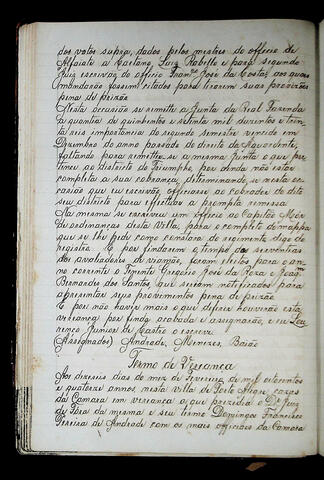 dos votos supra, dados pelos mestres do officio de
Alfaiate a Caetano Luiz Rabello e para segundo
Juiz escrivão do officio Franco José da Costa, aos quaes
mandarão fossem citados para tirarem suas provizões
pena de prizão
Nesta occasião se remitte a Junta da Real Fazenda
a quantia de quinhentos e setenta mil duzentos e trin
ta reis importancia do segundo semestre vencido em
Dezembro do anno passado do direito da Aguardente,
faltando para remetter-se a mesma Junta o que per
tence ao districto do Triumpho, por ainda não estar
completa a sua cobrança, determinando se nesta oc
casião que eu escrivão, officiasse ao cobrador do dito
seu districto para effectuar a prompta remissa
Na mesma se escreveu um officio ao Capitão Mór
de ordenanças desta Villa, para o completo do mappa
que se lhe pede como constará do seguimento digo do
registro. E por findarem o tempo das serventias
dos avaliadores de viamão, foram eleitos para o an
no corrente o Tenente Gregorio José da Roza e Joam
Bernardes dos Santos, que seriam notificados para
apresentar seus provimentos pena de prizão.
E por não haver mais o que deferir houverão esta
vereança por finda acabada e assignarão, e eu Lou
renço Junior de Castro o escrevi
Assignados) Andrade, Menezes, Baião
Termo de Vereança
Aos dezeseis dias do mez de Fevereiro de mil oitocentos
e quatorze annos, nesta villa de Porto Alegre cazas
da Camara em vereança a que prezidio o Dr Juiz
de Fora da mesma e seu termo Domingos Francisco
Pereira de Andrade com os mais officiaes da Camara